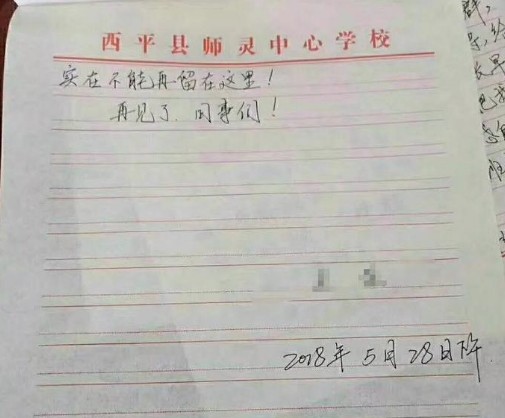 西平县师灵中心学校
实在不能再留在这里！
再见了、同事们！
2018年5月28日下午